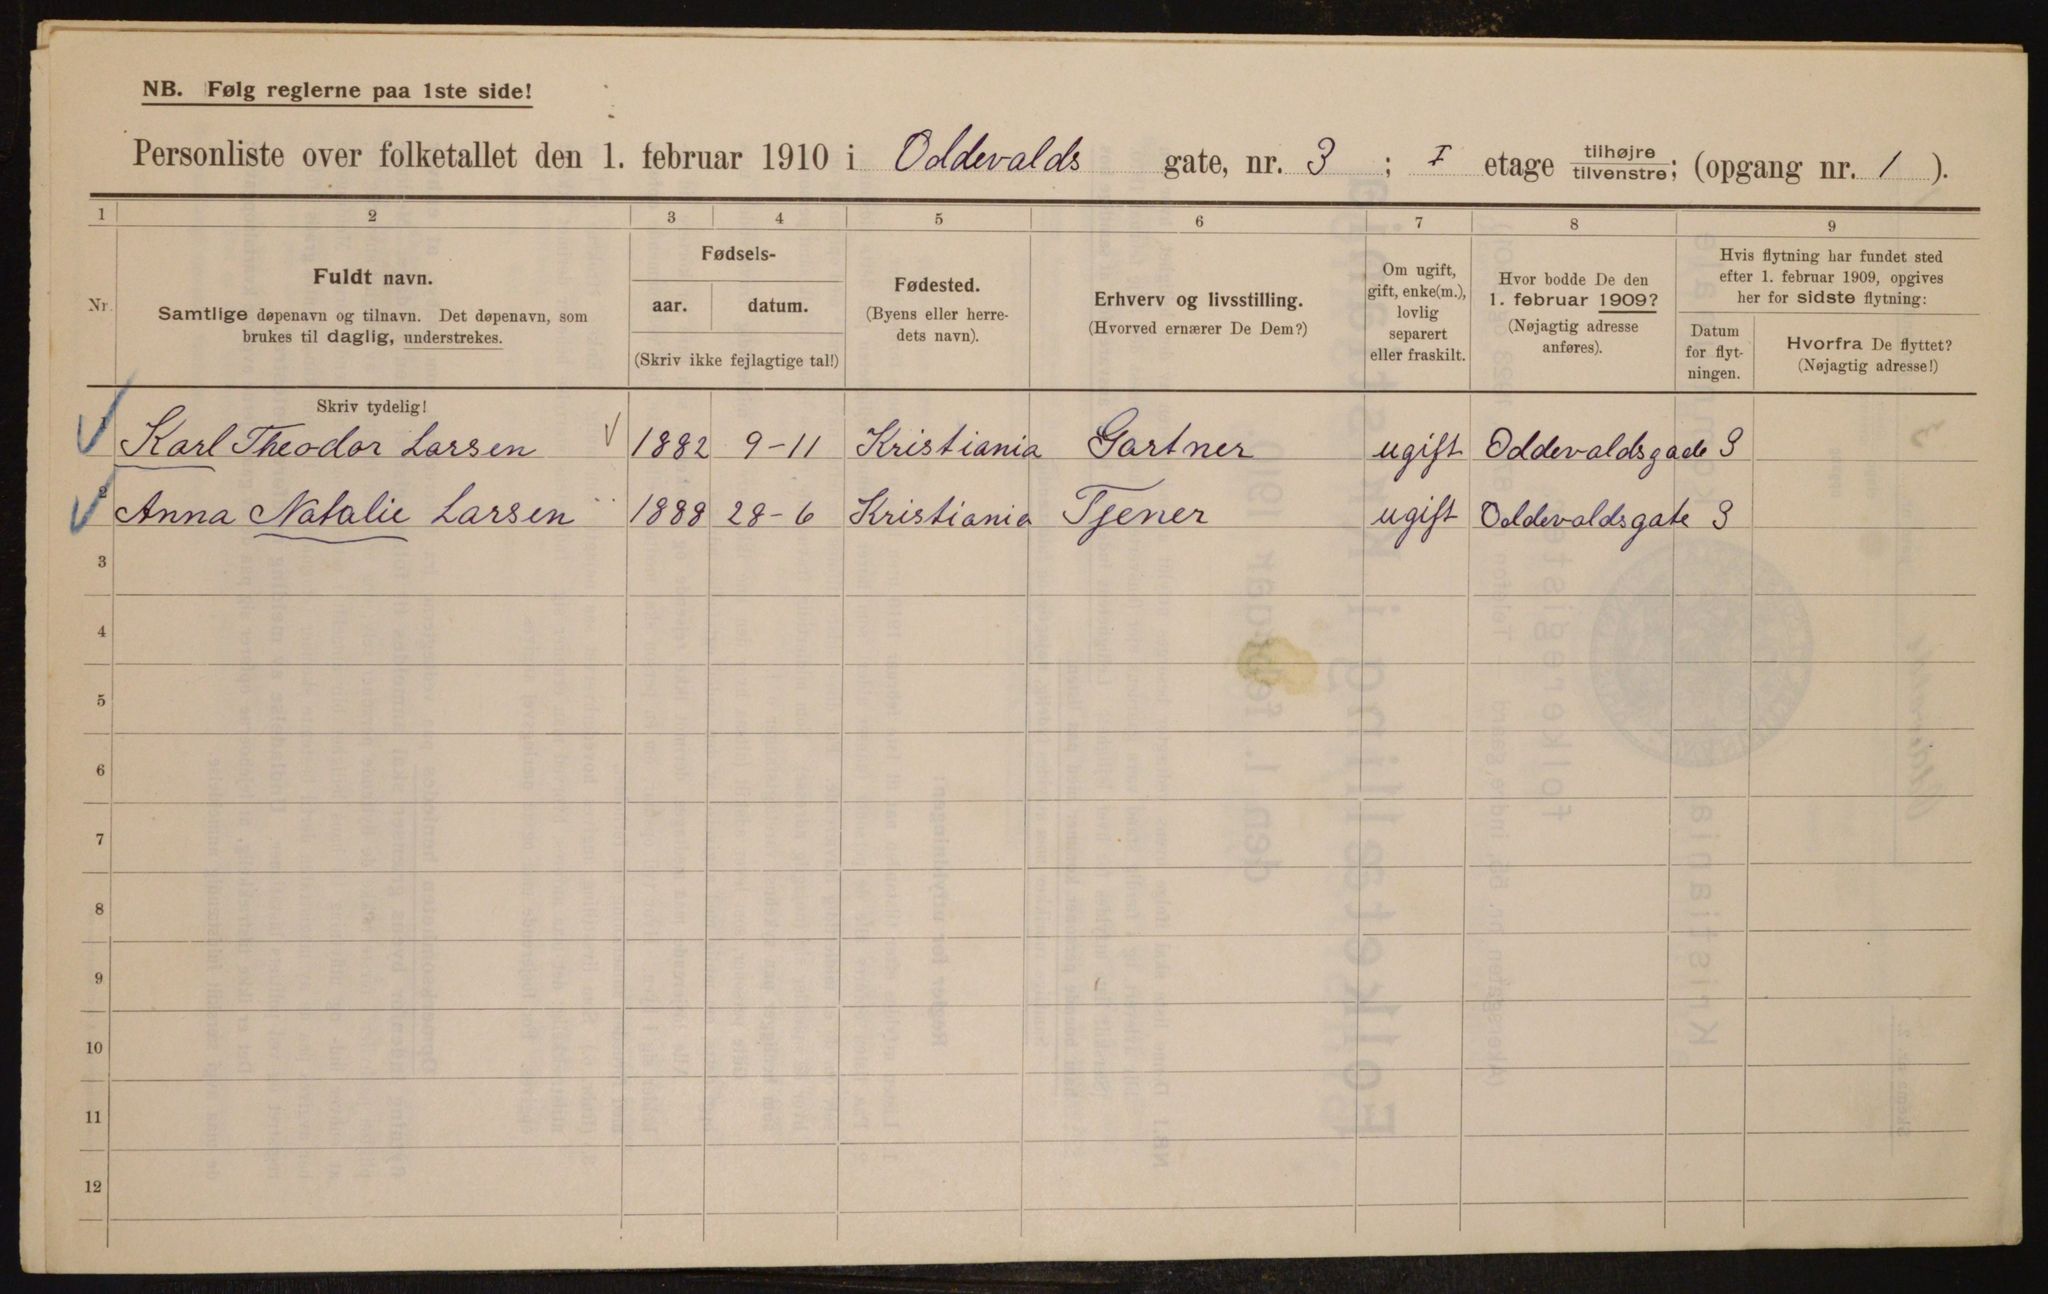 NB. Følg reglerne paa 1ste side!
Personliste over folketallet den 1. februar 1910 i Oddevalds gate, nr. 3 ; I etage tilhøjre tilvenstre; (opgang nr. 1 ).
1 2 3 4 5 6 7 8 9
Nr.
Fuldt navn.
Samtlige døpenavn og tilnavn. Det døpenavn, som
brukes til daglig, understrekes.
Fødsels-
aar. datum.
(Skriv ikke fejlagtige tal!)
Fødested.
(Byens eller herre-
dets navn).
Erhverv og livsstilling.
(Hvorved ernærer De Dem?)
Om ugift,
gift, enke(m.),
lovlig
separert
eller fraskilt.
Hvor bodde De den
1. februar 1909?
(Nøjagtig adresse
anføres).
Hvis flytning har fundet sted
efter 1. februar 1909, opgives
her for sidste flytning:
Datum
for flyt-
ningen.
Hvorfra De flyttet?
(Nøjagtig adresse!)
Skriv tydelig!
1 Karl Theodor Larsen 1882 9-11 Kristiania Gartner ugift Oddevaldsgade 3
2 Anna Natalie Larsen 1888 28-6 Kristiania Tjener ugift Oddevaldsgate 3
3
4
5
6
7
8
9
10
11
12